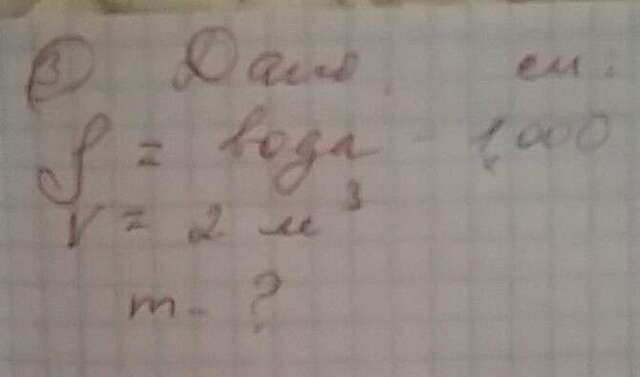 ③ Дано си.
ρ = вода 1,000
V = 2 м³
m - ?